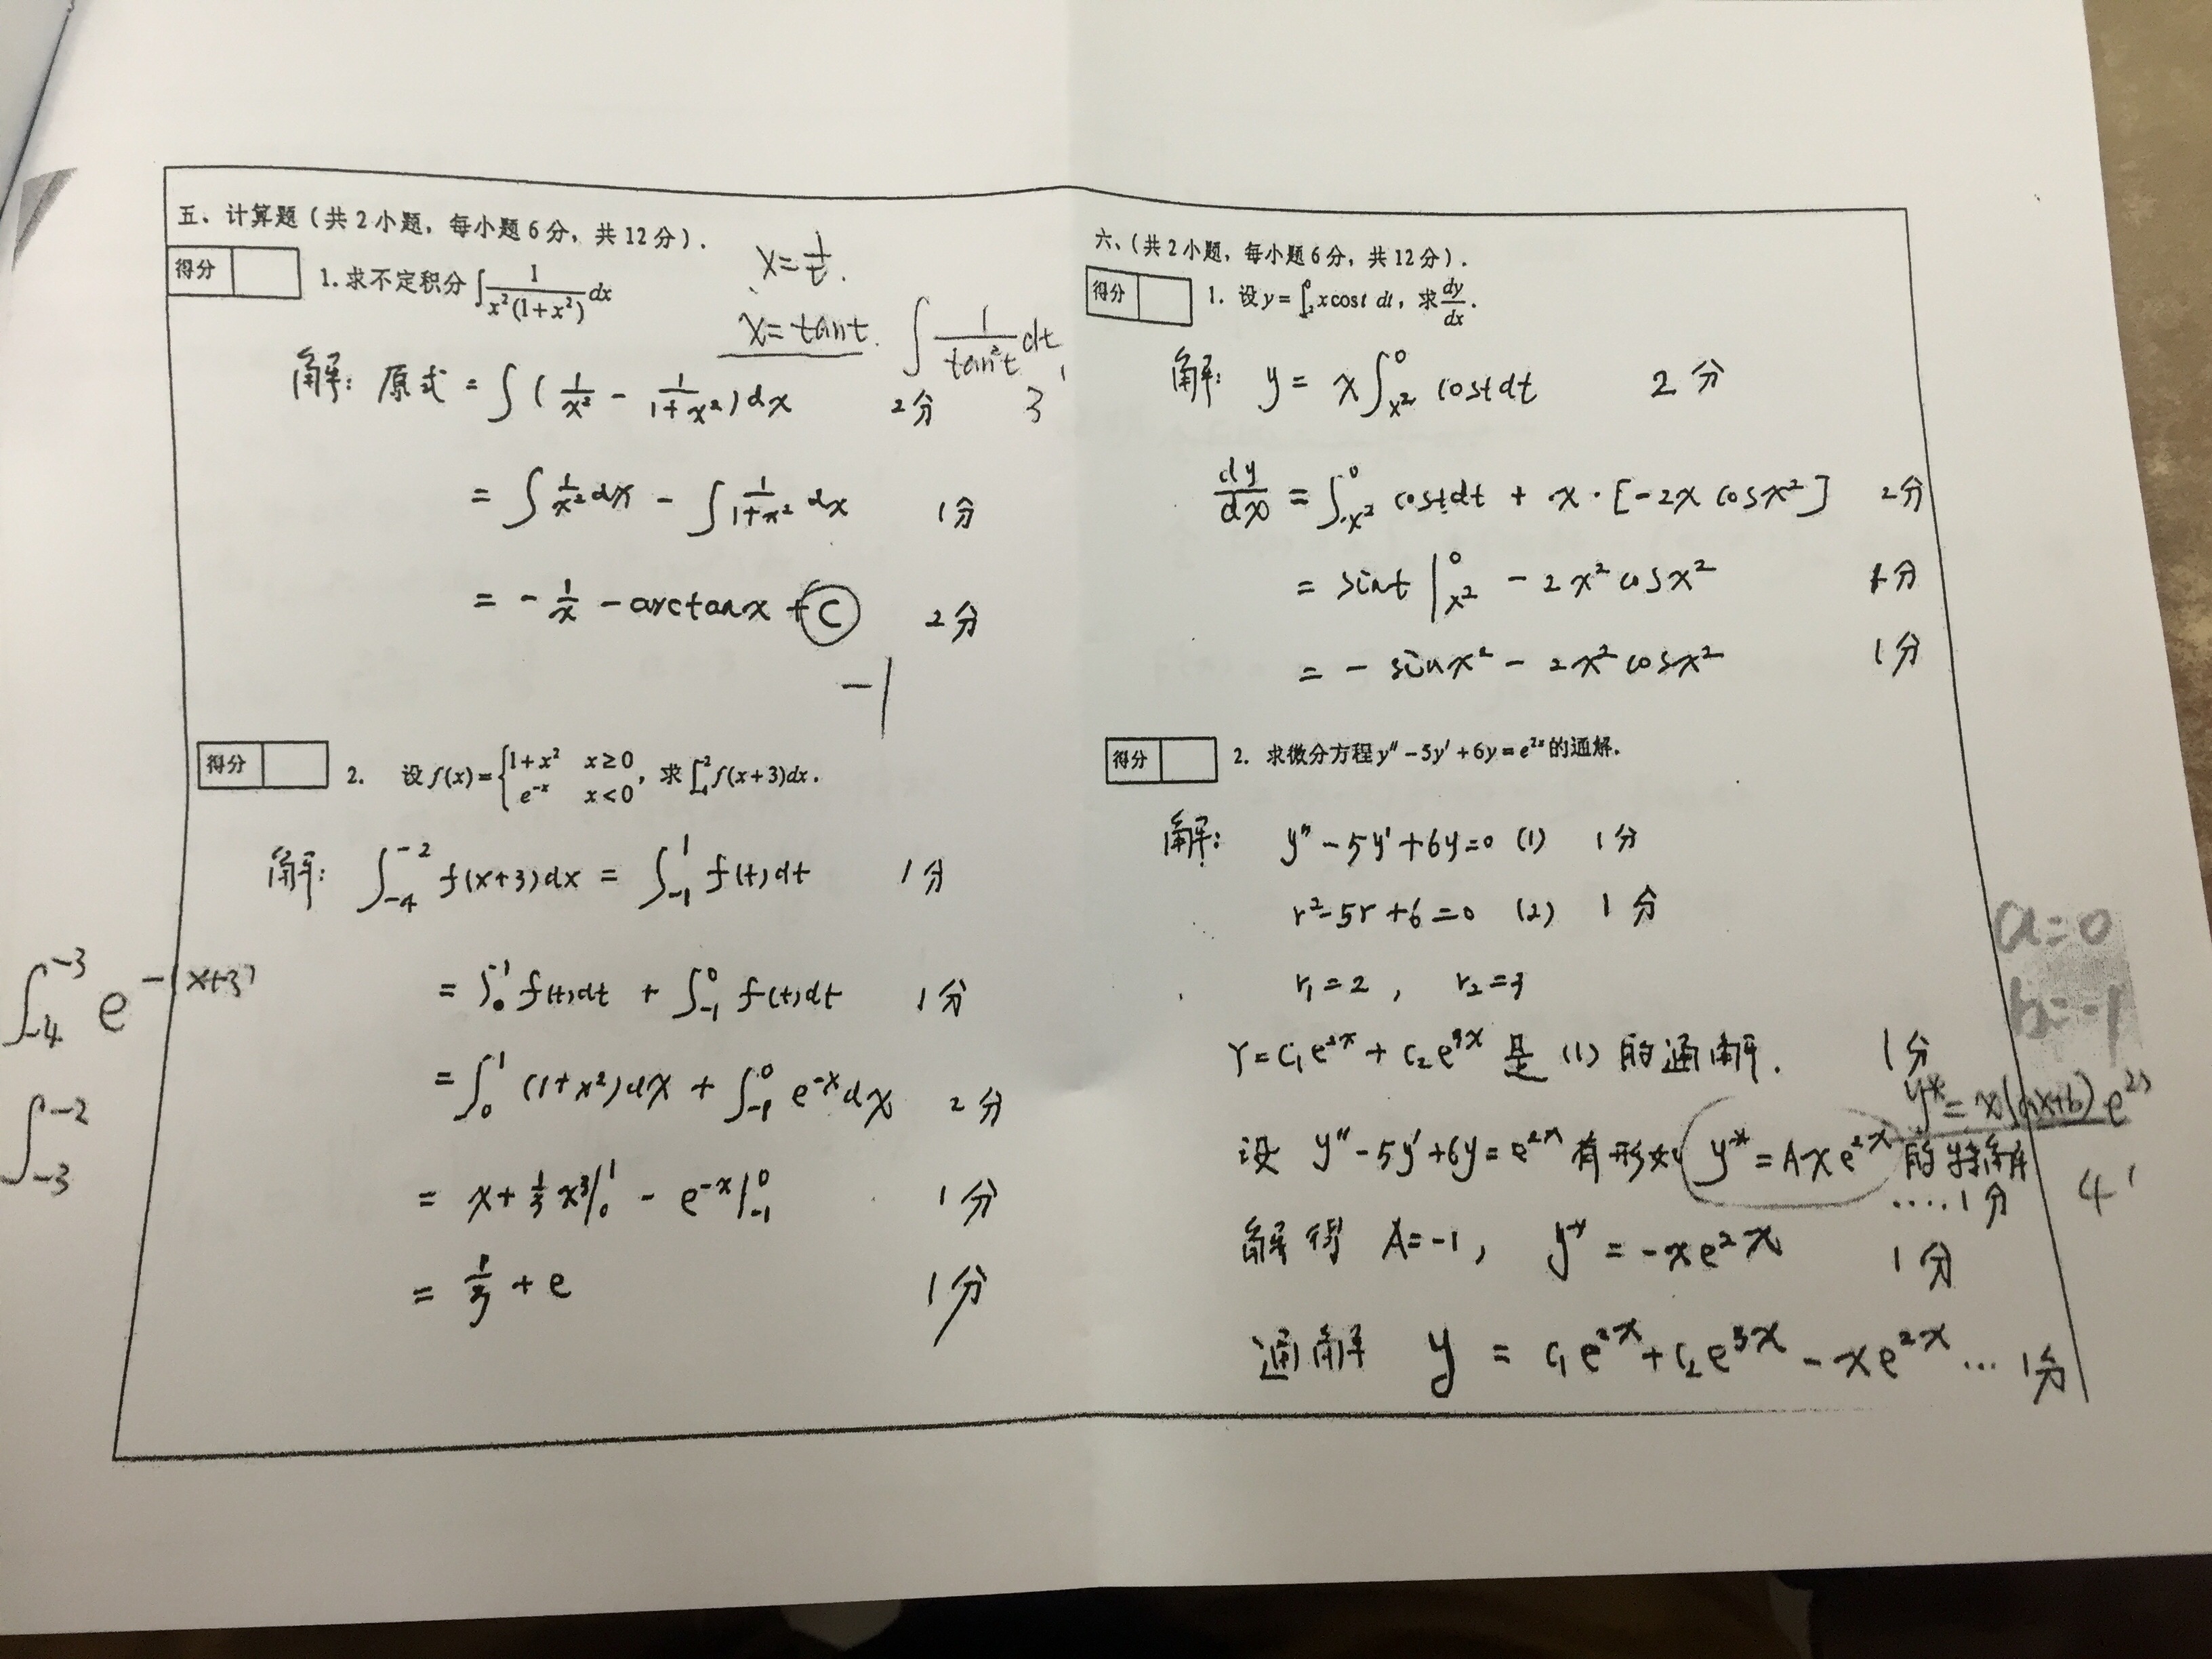 五、计算题（共 2 小题，每小题 6 分，共 12 分）.
得分
1. 求不定积分 ∫ 1/(x²(1+x²)) dx
x = 1/t .
x = tant . ∫ 1/tan²t dt
3'
解: 原式 = ∫ ( 1/x² - 1/(1+x²) ) dx 2分
= ∫ 1/x² dx - ∫ 1/(1+x²) dx 1分
= - 1/x - arctanx + C 2分
-1
得分
2. 设 f(x) = { 1+x² x≥0 e^{-x} x<0 , 求 ∫_{-4}^{-2} f(x+3)dx .
解: ∫_{-4}^{-2} f(x+3)dx = ∫_{-1}^{1} f(t)dt 1分
= ∫_0^1 f(t)dt + ∫_{-1}^0 f(t)dt 1分
= ∫_0^1 (1+x²)dx + ∫_{-1}^0 e^{-x}dx 2分
= x + 1/3 x³ |_0^1 - e^{-x} |_{-1}^0 1分
= 1/3 + e 1分
∫_{-4}^{-3} e^{-(x+3)}
∫_{-3}^{-2}
六、（共 2 小题，每小题 6 分，共 12 分）.
得分
1. 设 y = ∫_{x²}^0 xcost dt，求 dy/dx .
解: y = x ∫_{x²}^0 cost dt 2分
dy/dx = ∫_{x²}^0 costdt + x · [-2x cosx²] 2分
= sint |_{x²}^0 - 2x² cosx² 1分
= - sinx² - 2x² cosx² 1分
得分
2. 求微分方程 y″ - 5y′ + 6y = e^{2x} 的通解.
解: y″ - 5y′ + 6y = 0 (1) 1分
r² - 5r + 6 = 0 (2) 1分
r₁ = 2 , r₂ = 3
Y = C₁e^{2x} + C₂e^{3x} 是 (1) 的通解. 1分
设 y″ - 5y′ + 6y = e^{2x} 有形如 y* = Axe^{2x} 的特解
.... 1分
解得 A = -1, y* = -xe^{2x} 1分
通解 y = C₁e^{2x} + C₂e^{3x} - xe^{2x} ... 1分
a=0
b=-1
y* = x(ax+b)e^{2x}
4'